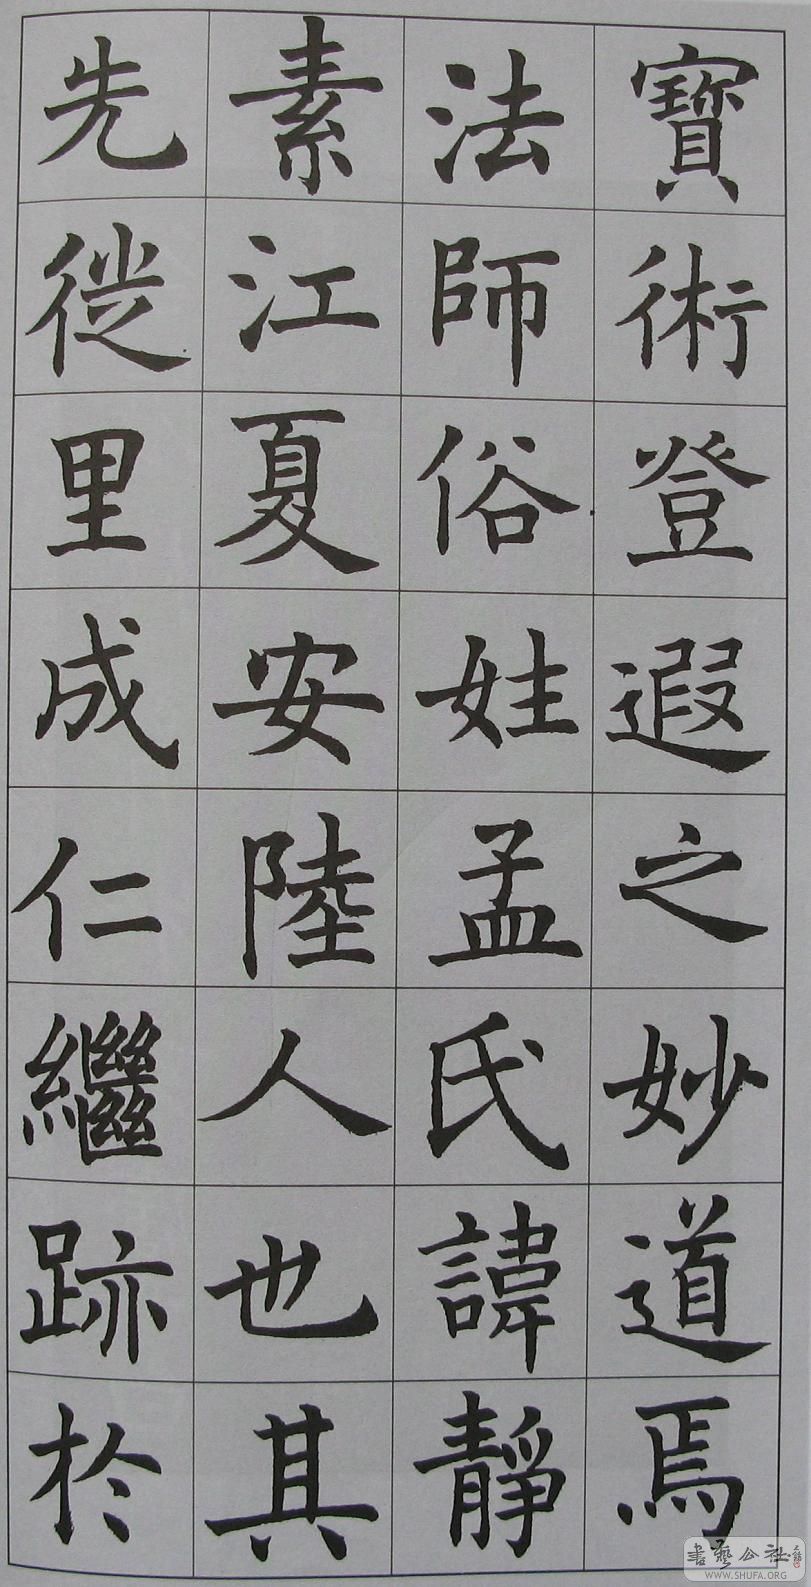 寶術登遐之妙道焉
法師俗姓孟氏諱靜
素江夏安陸人也其
先徙里成仁繼跡於
書藝公社
WWW.SHUFA.ORG